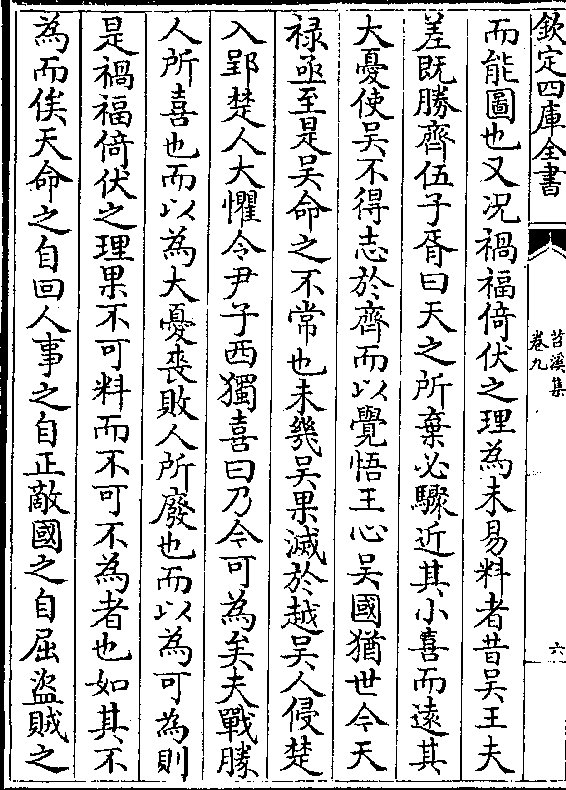 欽定四庫全書
苕溪集
卷九
六
而能圖也又况禍福倚伏之理為未易料者昔吴王夫
差既勝齊伍子胥曰天之所棄必驟近其小喜而遠其
大憂使吴不得志於齊而以覺悟王心吴國猶世今天
禄亟至是吴命之不常也未幾吴果滅於越吴人侵楚
入郢楚人大懼令尹子西獨喜曰乃今可為矣夫戰勝
人所喜也而以為大憂喪敗人所廢也而以為可為則
是禍福倚伏之理果不可料而不可不為者也如其不
為而俟天命之自回人事之自正敵國之自屈盗賊之